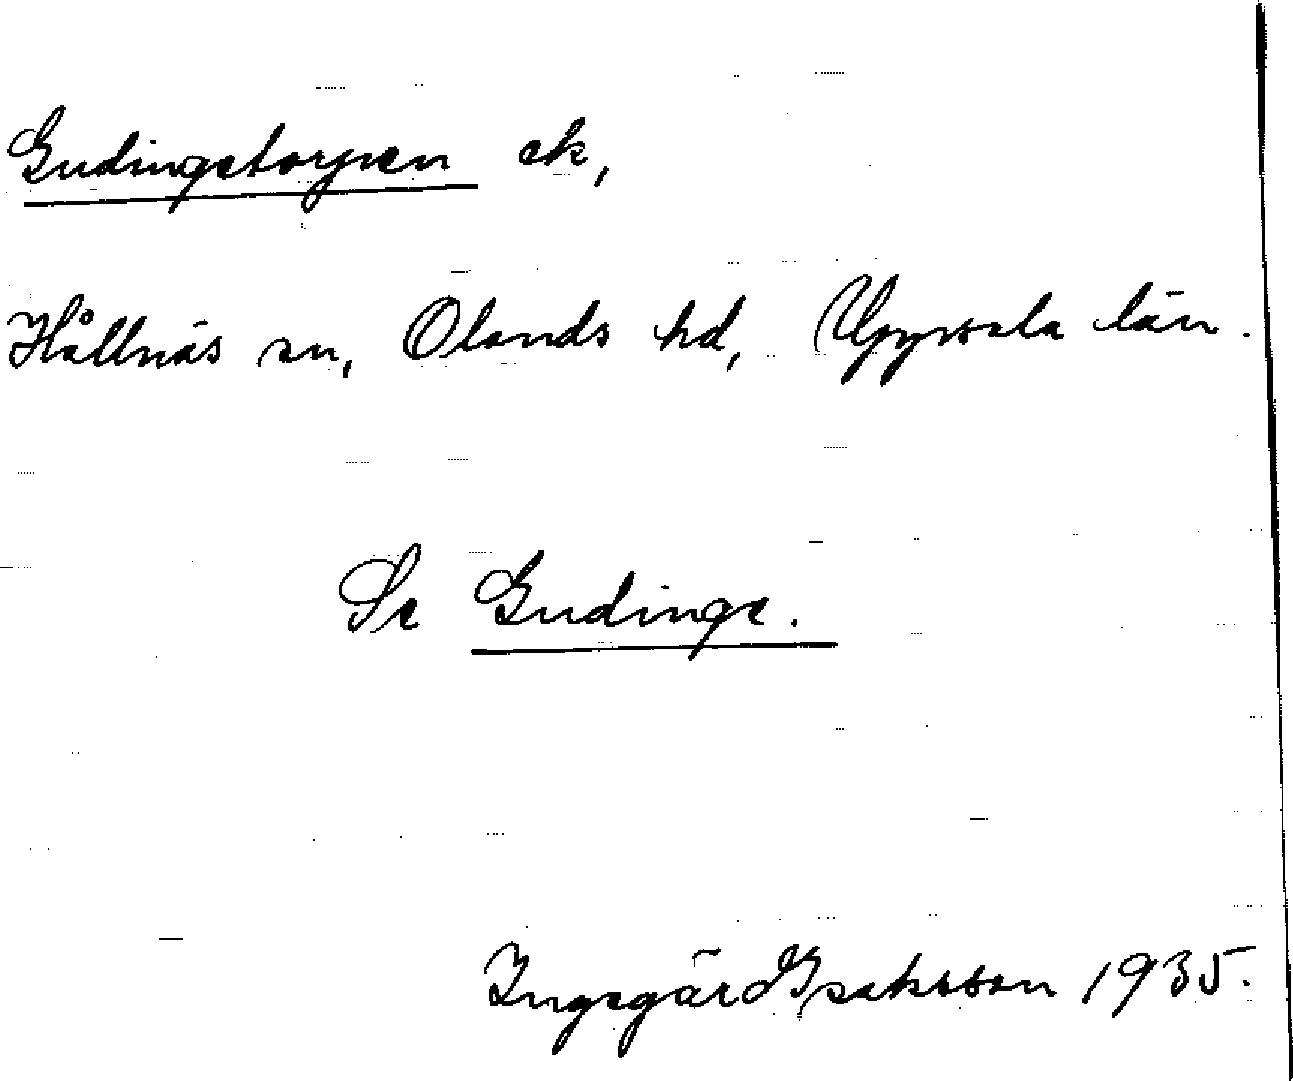 Gudingetorpen ek,
Hållnäs sn, Olands hd, Uppsala län.
Se Gudinge.
Ingegärd Isaksson 1935.